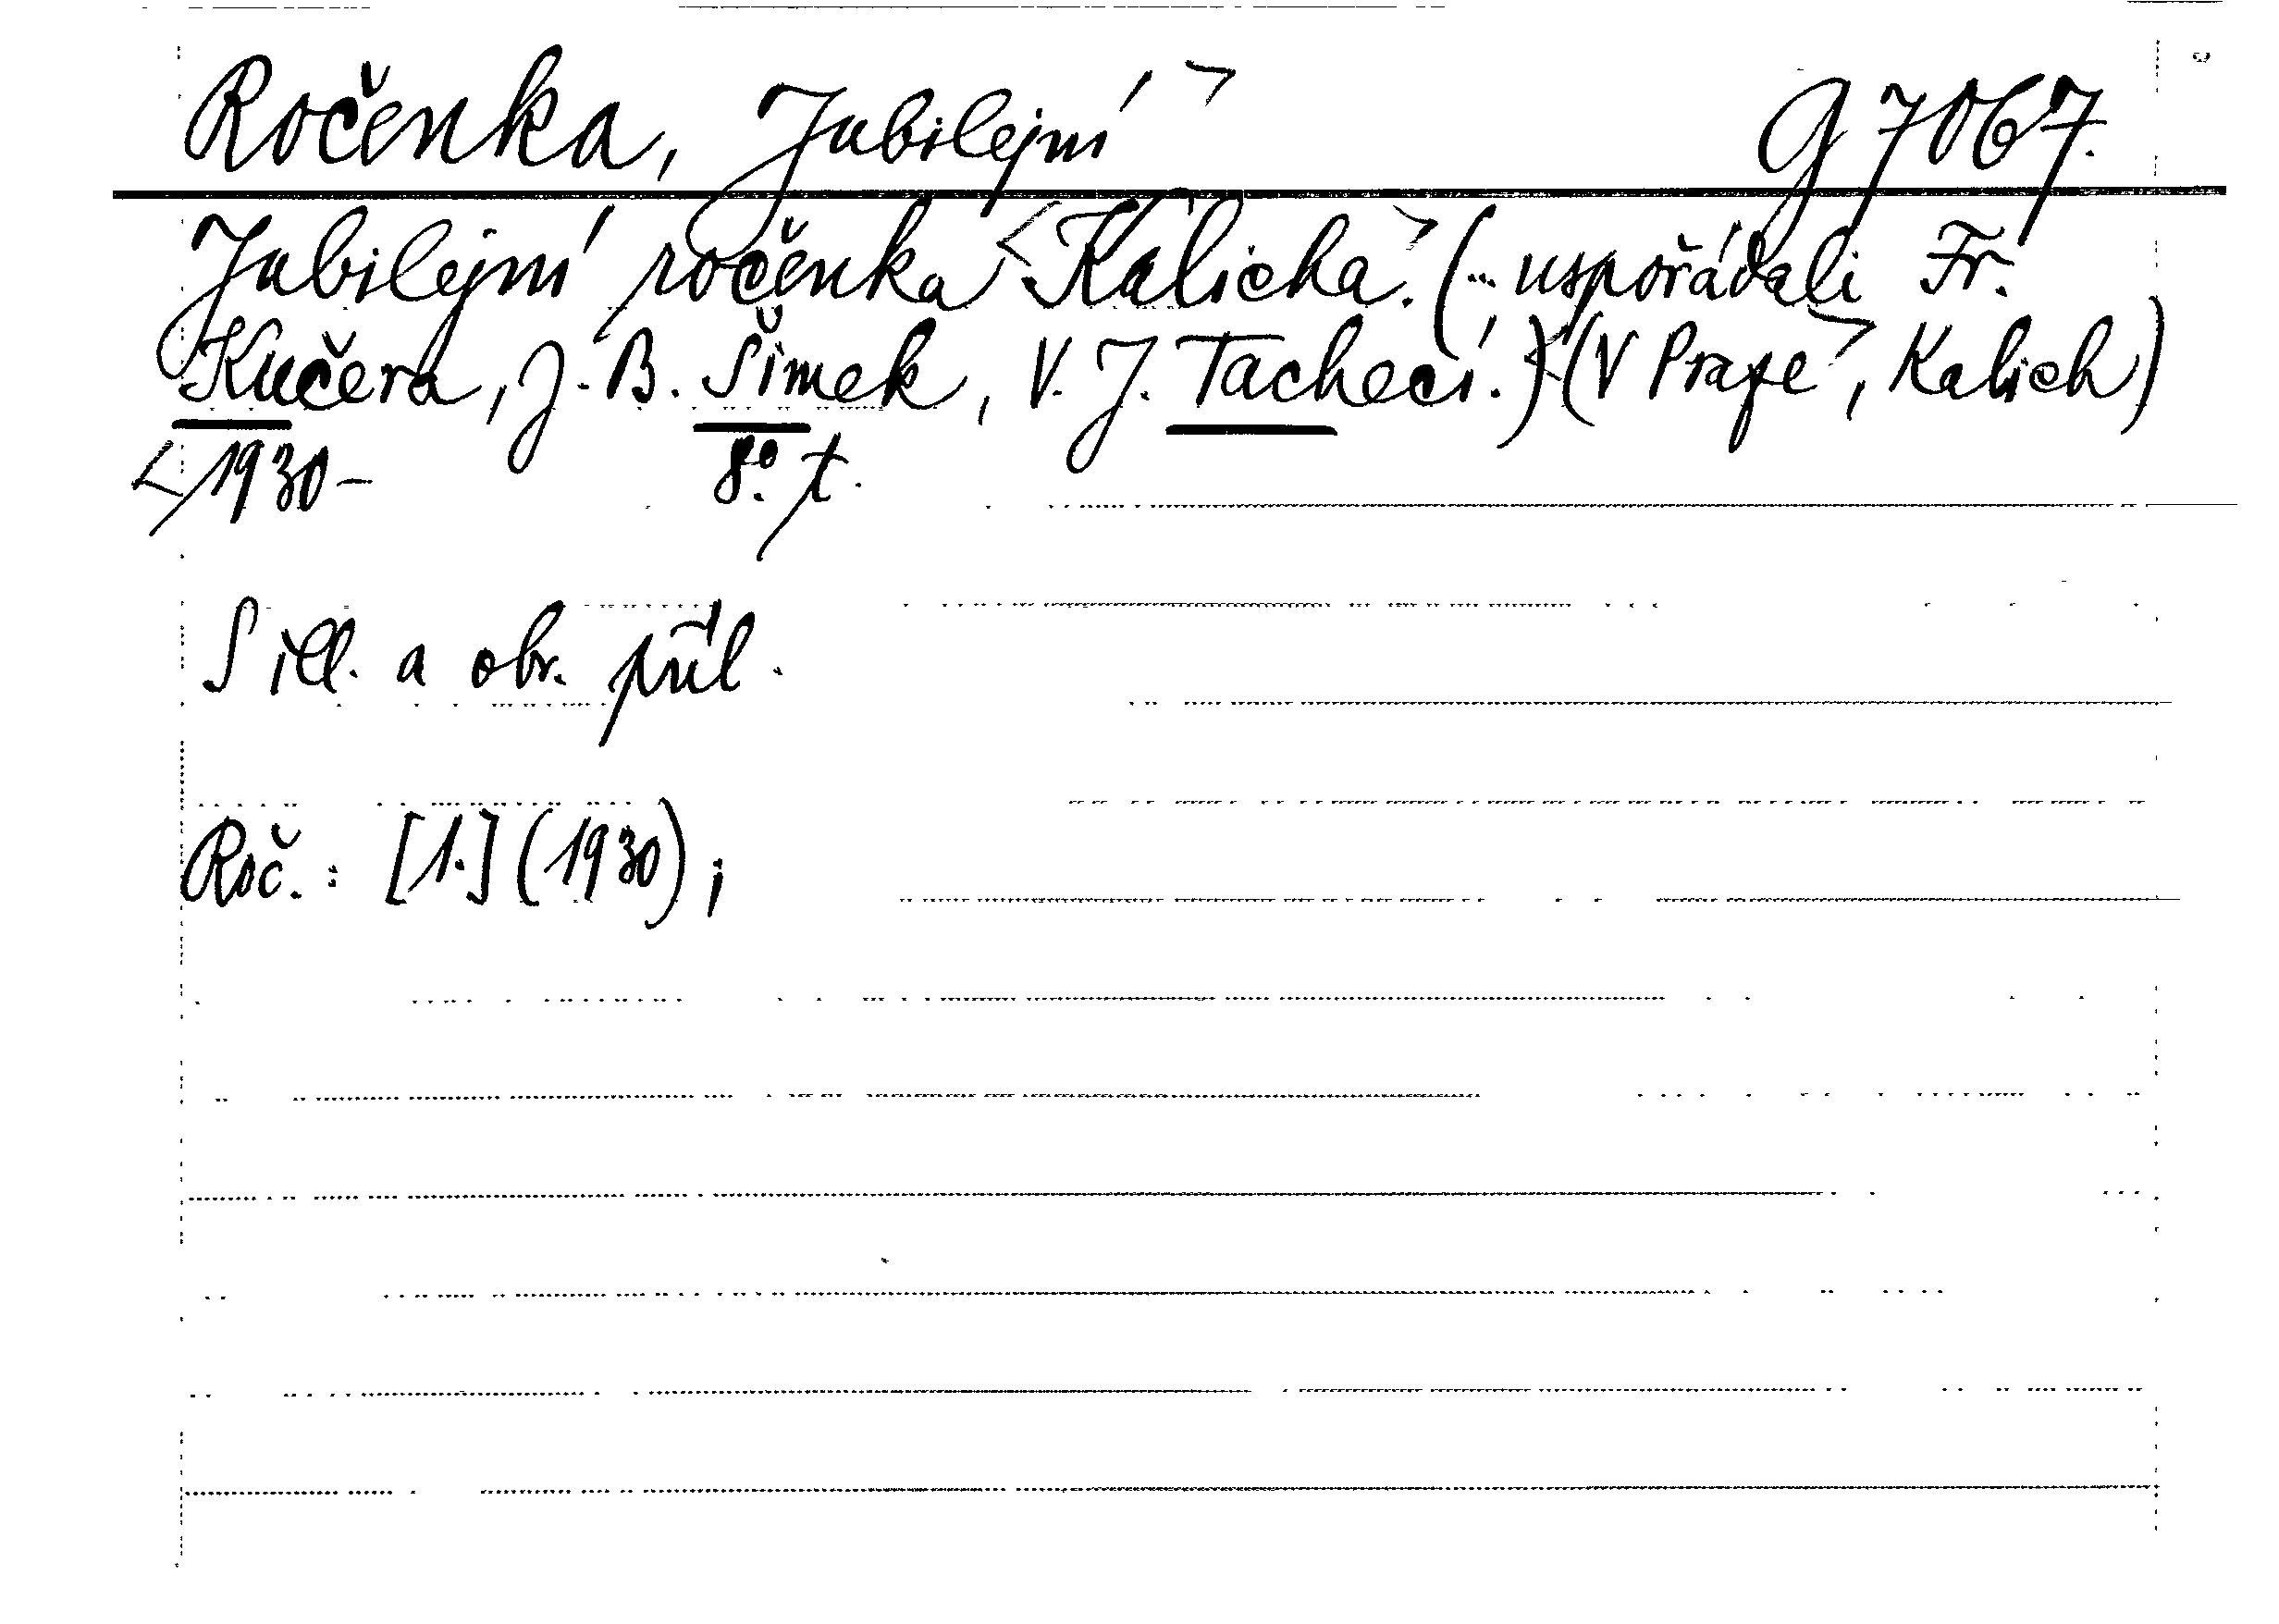 Ročenka, Jubilejní > G 7067.
Jubilejní ročenka <Kalicha.> (... uspořádali Fr.
Kučera, J. B. Šimek, V. J. Tachecí.) <(V Praze>, Kalich)
<1930- 8°. t.
S ill. a obr. příl.
Roč.: [1.] (1930);